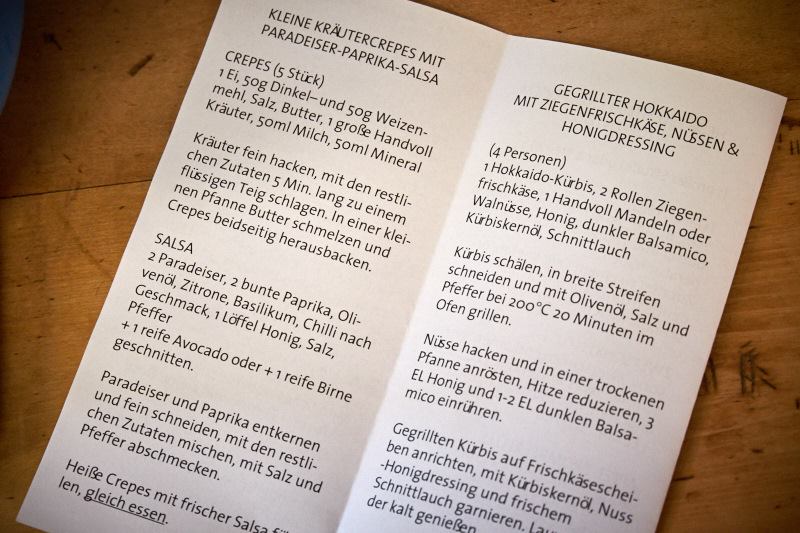 KLEINE KRÄUTERCREPES MIT
PARADEISER-PAPRIKA-SALSA
CREPES (5 Stück)
1 Ei, 50g Dinkel– und 50g Weizen-
mehl, Salz, Butter, 1 große Handvoll
Kräuter, 50ml Milch, 50ml Mineral
Kräuter fein hacken, mit den restli-
chen Zutaten 5 Min. lang zu einem
flüssigen Teig schlagen. In einer klei-
nen Pfanne Butter schmelzen und
Crepes beidseitig herausbacken.
SALSA
2 Paradeiser, 2 bunte Paprika, Oli-
venöl, Zitrone, Basilikum, Chilli nach
Geschmack, 1 Löffel Honig, Salz,
Pfeffer
+ 1 reife Avocado oder + 1 reife Birne
geschnitten.
Paradeiser und Paprika entkernen
und fein schneiden, mit den restli-
chen Zutaten mischen, mit Salz und
Pfeffer abschmecken.
Heiße Crepes mit frischer Salsa
len, gleich essen.
GEGRILLTER HOKKAIDO
MIT ZIEGENFRISCHKÄSE, NÜSSEN &
HONIGDRESSING
(4 Personen)
1 Hokkaido-Kürbis, 2 Rollen Ziegen-
frischkäse, 1 Handvoll Mandeln oder
Walnüsse, Honig, dunkler Balsamico,
Kürbiskernöl, Schnittlauch
Kürbis schälen, in breite Streifen
schneiden und mit Olivenöl, Salz und
Pfeffer bei 200°C 20 Minuten im
Ofen grillen.
Nüsse hacken und in einer trockenen
Pfanne anrösten, Hitze reduzieren, 3
EL Honig und 1-2 EL dunklen Balsa-
mico einrühren.
Gegrillten Kürbis auf Frischkäseschei-
ben anrichten, mit Kürbiskernöl, Nuss
-Honigdressing und frischem
Schnittlauch garnieren,
der kalt genießen